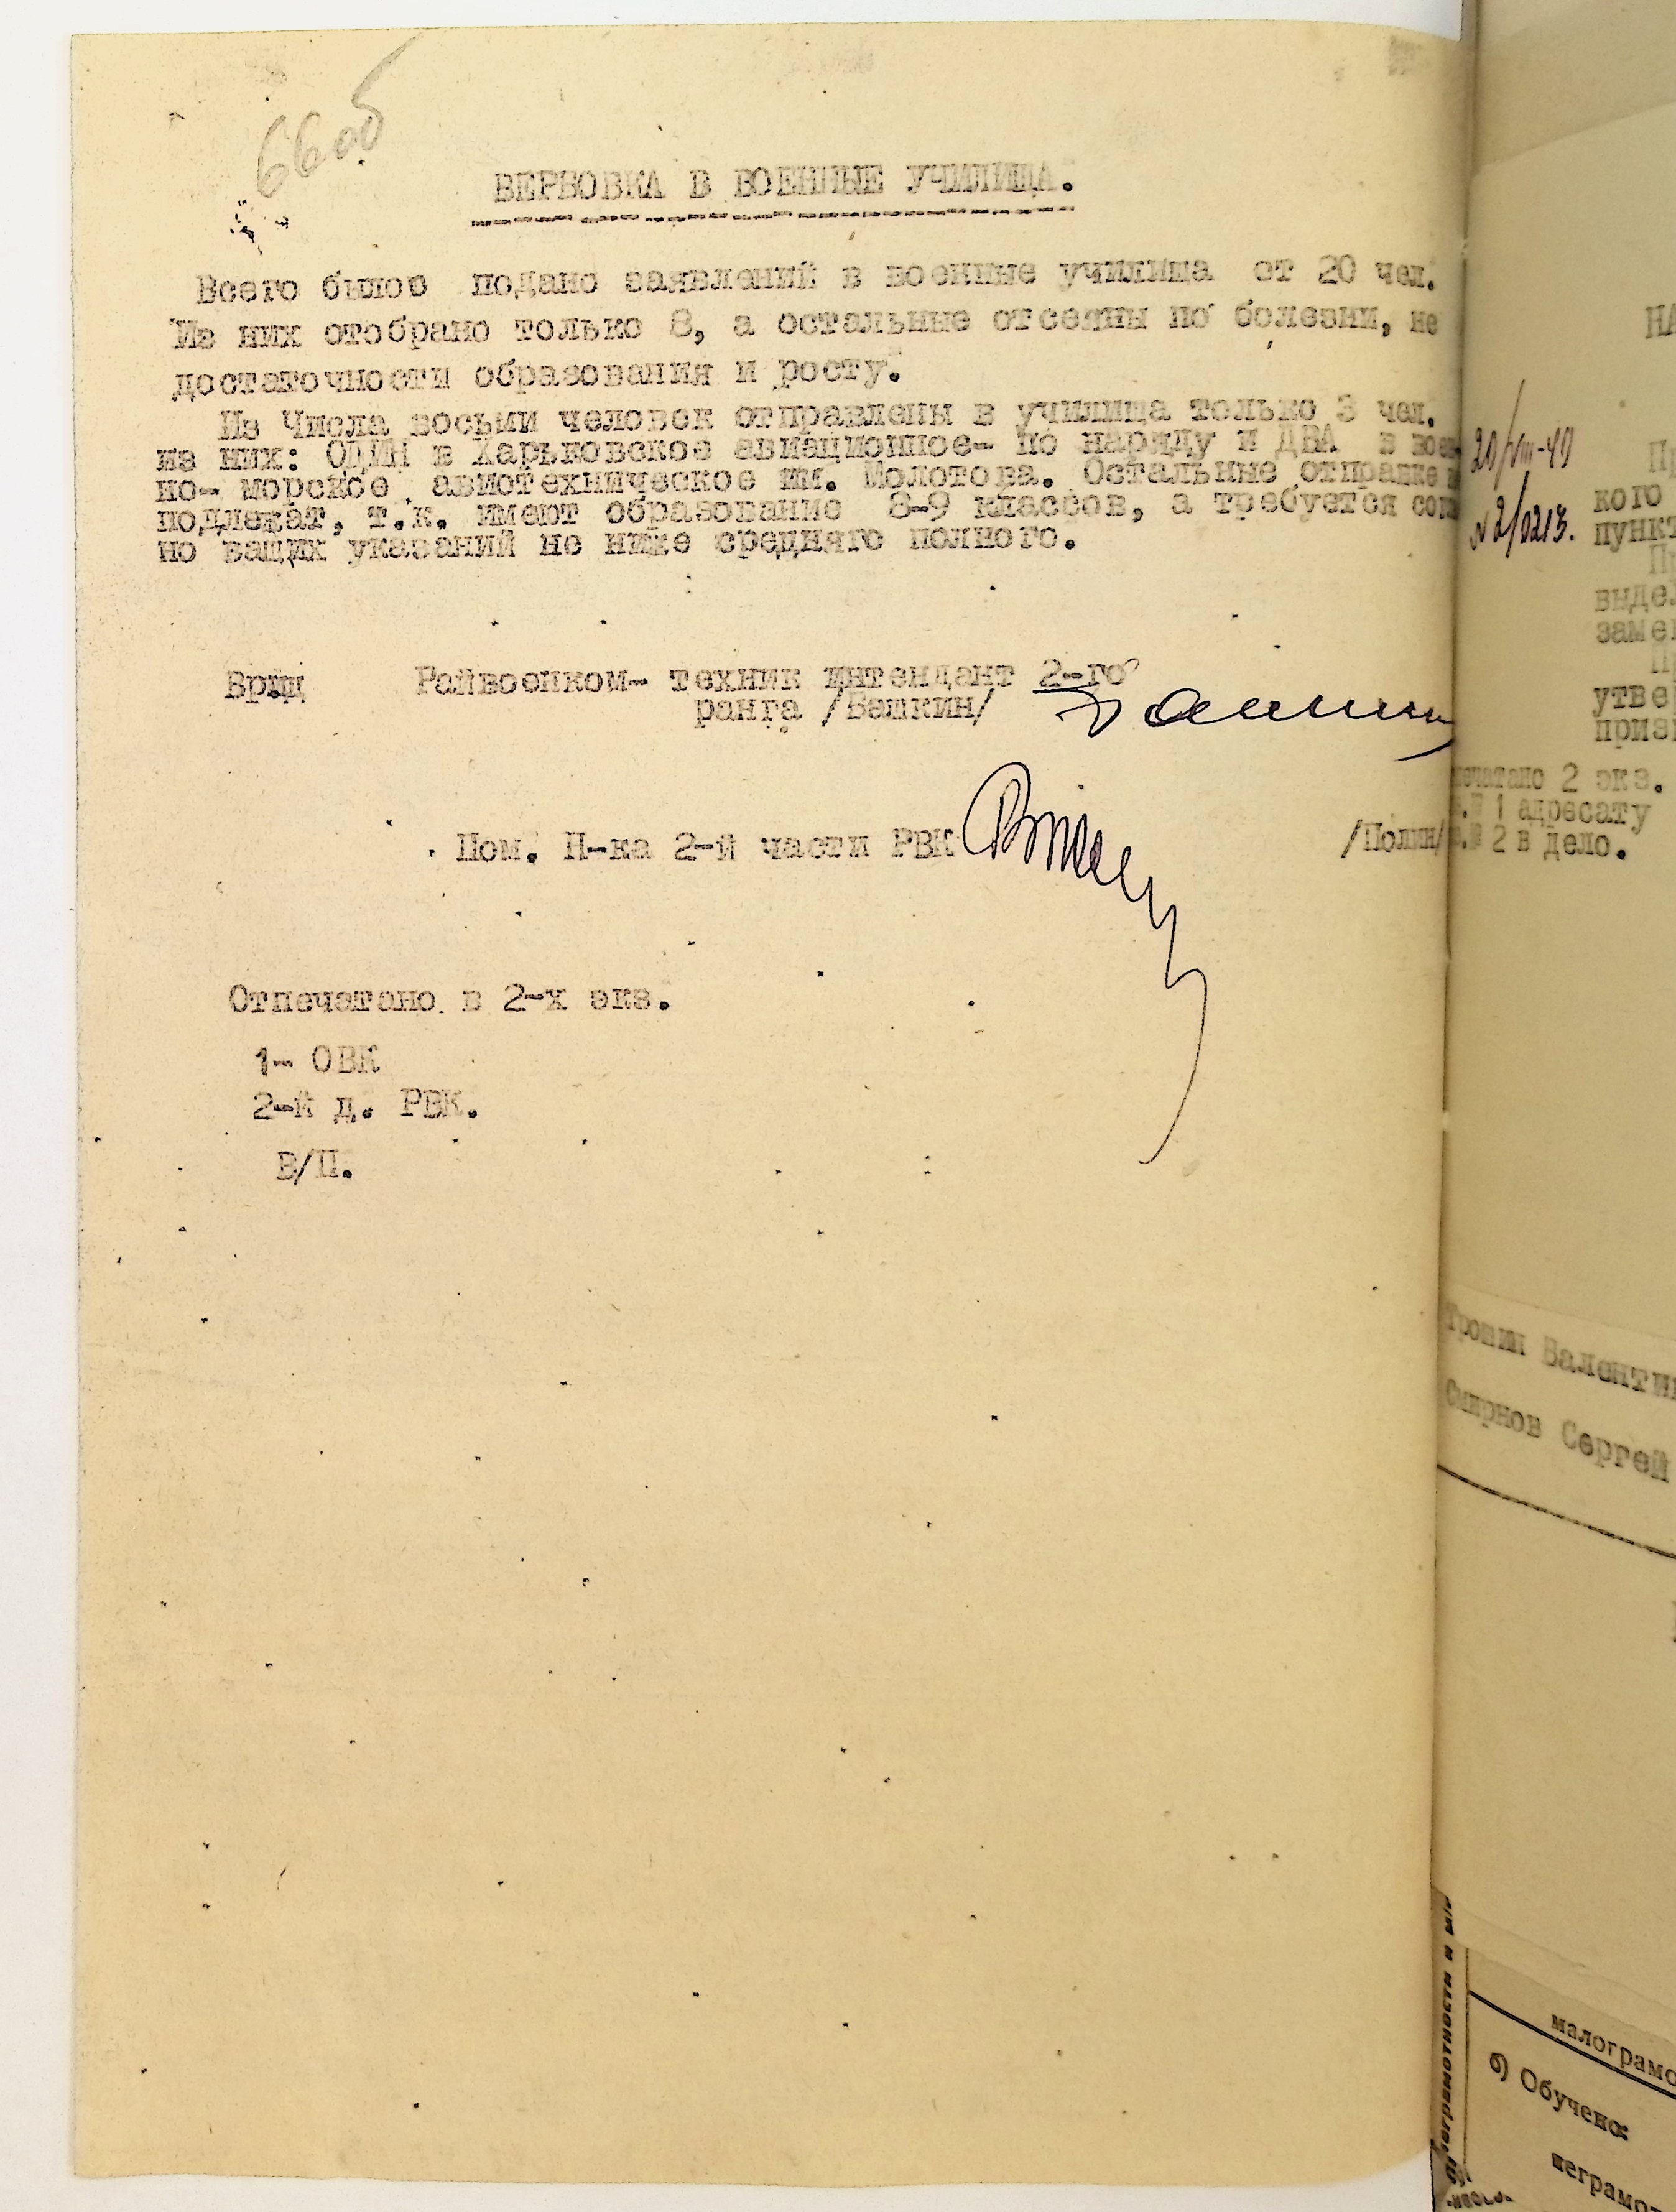 66об
ВЕРБОВКА В ВОЕННЫЕ УЧИЛИЩА.
Всего былоо подано заявлений в военные училища от 20 чел.
Из них отобрано только 8, а остальные отсеяны по болезни, не
достаточности образования и росту.
Из Числа восьми человек отправлены в училища только 3 чел.
из них: ОДИН в Харьковское авиационное- по наряду и ДВА в воен
но- морское авиотехническое им. Молотова. Остальные отправке н
подлежат, т.к. имеют образование 8-9 классов, а требуется согл
но ваших указаний не ниже среднего полного.
Врид Райвоенком- техник интендант 2-го
ранга /Вашкин/
Пом. Н-ка 2-й части РВК /Полин/
Отпечатано в 2-х экз.
1- ОВК
2-й д. РВК.
В/П.
НА
20/VIII-40
№2/0213.
кого
пункт
выде
заме
утве
приз
печатано 2 экз.
1 адресату
2 в дело.
Трошин Валентин
Смирнов Сергей
малограмо
б) Обучено:
неграмот